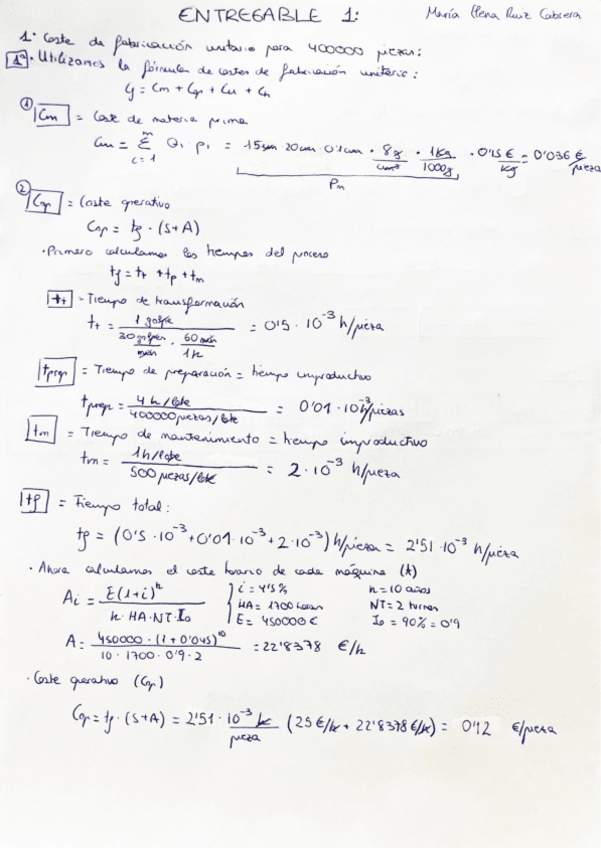 ENTREGABLE 1:
María Elena Ruiz Cabrera
1· Coste de fabricación unitario para 400000 piezas:
1º · Utilizamos la fórmula de costes de fabricación unitario:
Cf = Cm + Cop + Cu + Cn
① Cm = Coste de materia prima
Cm = Σ Qi · pi = 15cm 20cm 0'1cm · 8g/cm³ · 1Kg/1000g · 0'15 €/Kg = 0'036 €/pieza
m
i = 1
Pm
② Cop = Coste operativo
Cop = tf · (S+A)
· Primero calculamos los tiempos del proceso
tf = tt + tp + tm
tt - Tiempo de transformación
tt = 1 golpe / 30 golpes/min · 60 min/1h = 0'5 · 10⁻³ h/pieza
tprep = Tiempo de preparación = tiempo improductivo
tprep = 4 h/lote / 400000 piezas/lote = 0'01 · 10⁻³ h/piezas
tm = Tiempo de mantenimiento = tiempo improductivo
tm = 1h/lote / 500 piezas/lote = 2 · 10⁻³ h/pieza
tf = Tiempo total:
tf = (0'5 · 10⁻³ + 0'01 · 10⁻³ + 2 · 10⁻³) h/pieza = 2'51 · 10⁻³ h/pieza
· Ahora calculamos el coste horario de cada máquina (A)
Ai = E(1+i)ⁿ / n · HA · NT · Io
i = 4'5% n = 10 años
HA = 1700 horas NT = 2 turnos
E = 450000 € Io = 90% = 0'9
A = 450000 · (1 + 0'045)¹⁰ / 10 · 1700 · 0'9 · 2 = 22'8378 €/h
· Coste operativo (Cop)
Cop = tf · (S+A) = 2'51 · 10⁻³ h/pieza (25 €/h + 22'8378 €/h) = 0'12 €/pieza